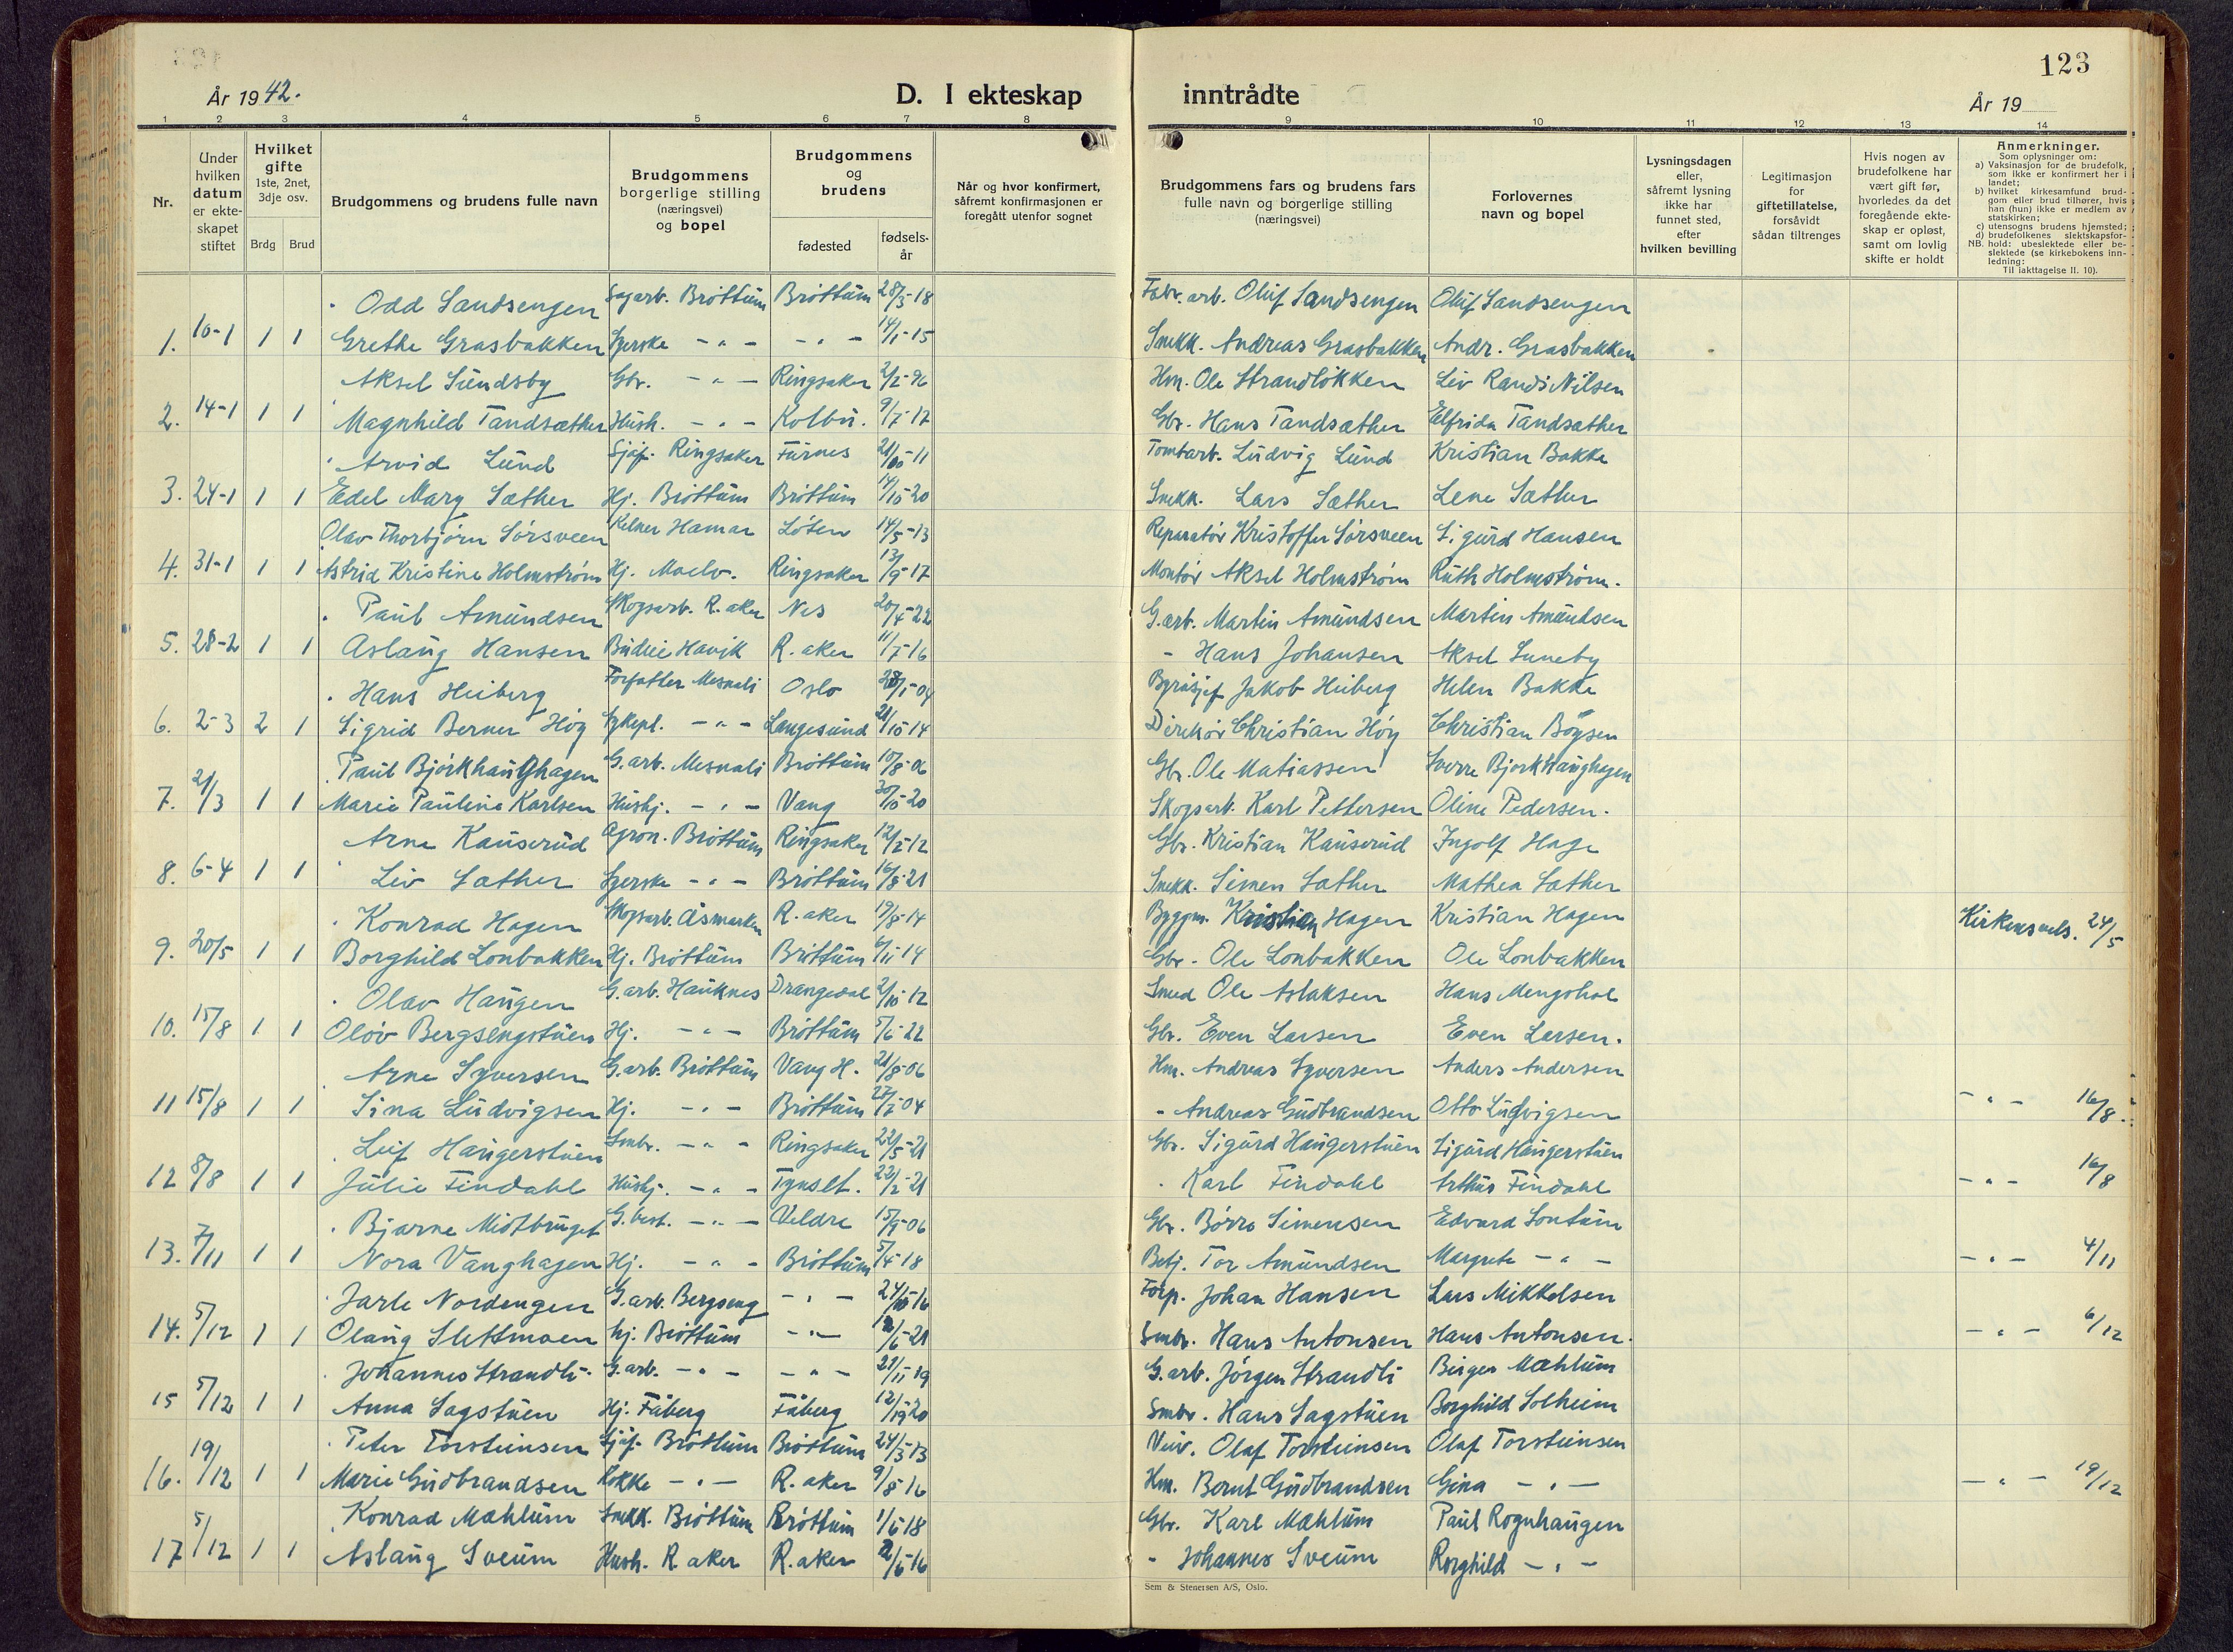 År 1942.
D. I ekteskap inntrådte
123
År 19
1 2 3 4 5 6 7 8 9 10 11 12 13 14
Nr.
Under hvilken datum er ekteskapet stiftet
Hvilket gifte 1ste, 2net, 3dje osv.
Brdg Brud
Brudgommens og brudens fulle navn
Brudgommens borgerlige stilling (næringsvei) og bopel
Brudgommens og brudens
fødested
fødselsår
Når og hvor konfirmert, såfremt konfirmasjonen er foregått utenfor sognet
Brudgommens fars og brudens fars fulle navn og borgerlige stilling (næringsvei)
Forlovernes navn og bopel
Lysningsdagen eller, såfremt lysning ikke har funnet sted, efter hvilken bevilling
Legitimasjon for giftetillatelse, forsåvidt sådan tiltrenges
Hvis nogen av brudefolkene har vært gift før, hvorledes da det foregående ekteskap er opløst, samt om lovlig skifte er holdt
Anmerkninger.
Som oplysninger om:
a) Vaksinasjon for de brudefolk, som ikke er konfirmert her i landet;
b) hvilket kirkesamfund brudgom eller brud tilhører, hvis han (hun) ikke er medlem av statskirken;
c) utensogns brudens hjemsted;
d) brudefolkenes slektskapsforhold: ubeslektede eller beslektede (se kirkebokens innledning:
NB. Til iakttagelse II. 10).
Odd Sandsengen Sagarb. Brøttum Brøttum 28/3-18 Fabr. arb. Oluf Sandsengen Oluf Sandsengen
1. 10-1 1 1 Grethe Grasbakken Syerske -"- -"- 14/1-15 Snekk. Andreas Grasbakken Andr. Grasbakken
Aksel Sundsby Gbr. -"- Ringsaker 2/2-96 Hm. Ole Strandløkken Liv Randi Nilsen
2. 14-1 1 1 Magnhild Tandsæther Hush. -"- Kolbu. 9/7-17 Gbr. Hans Tandsæther Elfrida Tandsæther
Arvid Lund Sjåf. Ringsaker Furnes 21/10-11 Tomtarb. Ludvig Lund Kristian Bakke
3. 24-1 1 1 Edel Mary Sæther Hj. Brøttum Brøttum 14/10-20 Snekk. Lars Sæther Lene Sæther
Olav Thorbjørn Sørsveen Kelner Hamar Løten 14/5-13 Reparatør Kristoffer Sørsveen Sigurd Hansen
4. 31-1 1 1 Astrid Kristine Holmstrøm Hj. Moelv. Ringsaker 13/9-17 Montør Aksel Holmstrøm Ruth Holmstrøm.
Paul Amundsen Skogsarb. R.aker Nes 20/4-22 G.arb. Martin Amundsen Martin Amundsen
5. 28-2 1 1 Aslaug Hansen Budeie Havik R.aker 11/7-16 - Hans Johansen Aksel Suneby
Hans Heiberg Forfatter Mesnali Oslo 28/1-04 Byråsjef Jakob Heiberg Helen Bakke
6. 2-3 2 1 Sigrid Berner Höy Sykepl. -"- Langesund 21/10-14 Direktør Christian Höy Christian Böysen
Paul Bjørkhaughagen G.arb. Mesnali Brøttum 10/8-06 Gbr. Ole Matiassen Sverre Bjørkhaughagen
7. 21/3 1 1 Marie Pauline Karlsen Hushj. -"- Vang 30/10-20 Skogsarb. Karl Pettersen Oline Pedersen.
Arne Kauserud Agron. Brøttum Ringsaker 12/2-12 Gbr. Kristian Kauserud Ingolf Hage
8. 6-4 1 1 Liv Sæther Syerske -"- Brøttum 16/8-21 Snekk. Simen Sæther Mathea Sæther
Konrad Hagen Skogsarb. Åsmarken R.aker 19/8-14 Byggm. Kristian Hagen Kristian Hagen
9. 20/5 1 1 Borghild Lonbakken Hj. Brøttum Brøttum 6/11-14 Gbr. Ole Lonbakken Ole Lonbakken Kirkens vels. 24/5
Olav Haugen G.arb. Hauknes Drangedal 2/10-12 Smed Ole Aslaksen Hans Mengshol
10. 15/8 1 1 Oløv Bergsengstuen Hj. -"- Brøttum 5/6-22 Gbr. Even Larsen Even Larsen.
Arne Syversen G.arb. Brøttum Vang H. 21/8-06 Hm. Andreas Syversen Anders Andersen
11 15/8 1 1 Sina Ludvigsen Hj. -"- Brøttum 27/2-04 - Andreas Gudbrandsen Otto Ludvigsen -"- 16/8.
Leif Haugerstuen Smbr. -"- Ringsaker 22/5-21 Gbr. Sigurd Haugerstuen Sigurd Haugerstuen
12 8/8 1 1 Julie Findahl Hushj. -"- Tynset. 22/2-21 - Karl Findahl Arthur Findahl -"- 16/8
Bjarne Midtbruget G.best. -"- Veldre 15/9-06 Gbr. Børre Simensen Edvard Lontum
13. 7/11 1 1 Nora Vanghagen Hj. -"- Brøttum 5/4-18 Betj. Tor Amundsen Margrete -"- -"- 4/11
Jarle Nordengen G.arb. Bergseng -"- 24/10-16 Forp. Johan Hansen Lars Mikkelsen
14. 5/12 1 1 Olaug Slettmoen Hj. Brøttum -"- /6-21 Smbr. Hans Antonsen Hans Antonsen. -"- 6/12
Johannes Strandli G.arb. -"- -"- 21/11-19 G.arb. Jørgen Strandli Birger Mæhlum
15 5/12 1 1 Anna Sagstuen Hj. Fåberg Fåberg 12/-20 Smbr. Hans Sagstuen Borghild Solheim
Peter Torsteinsen Sjåf. Brøttum Brøttum 24/3-13 Veiv. Olaf Torsteinsen Olaf Torsteinsen
16. 19/12 1 1 Marie Gudbrandsen Kokke -"- R.aker 9/8-16 Hm. Bernt Gudbrandsen Gina -"- -"- 19/12
Konrad Mæhlum Snekk. Brøttum Brøttum 1/6-18 Gbr. Karl Mæhlum Paul Rognhaugen
17 5/12 1 1 Aslaug Sveum Hush. R.aker R.aker 2/6-16 - Johannes Sveum Borghild -"-
Sem & Stenersen A/S, Oslo.